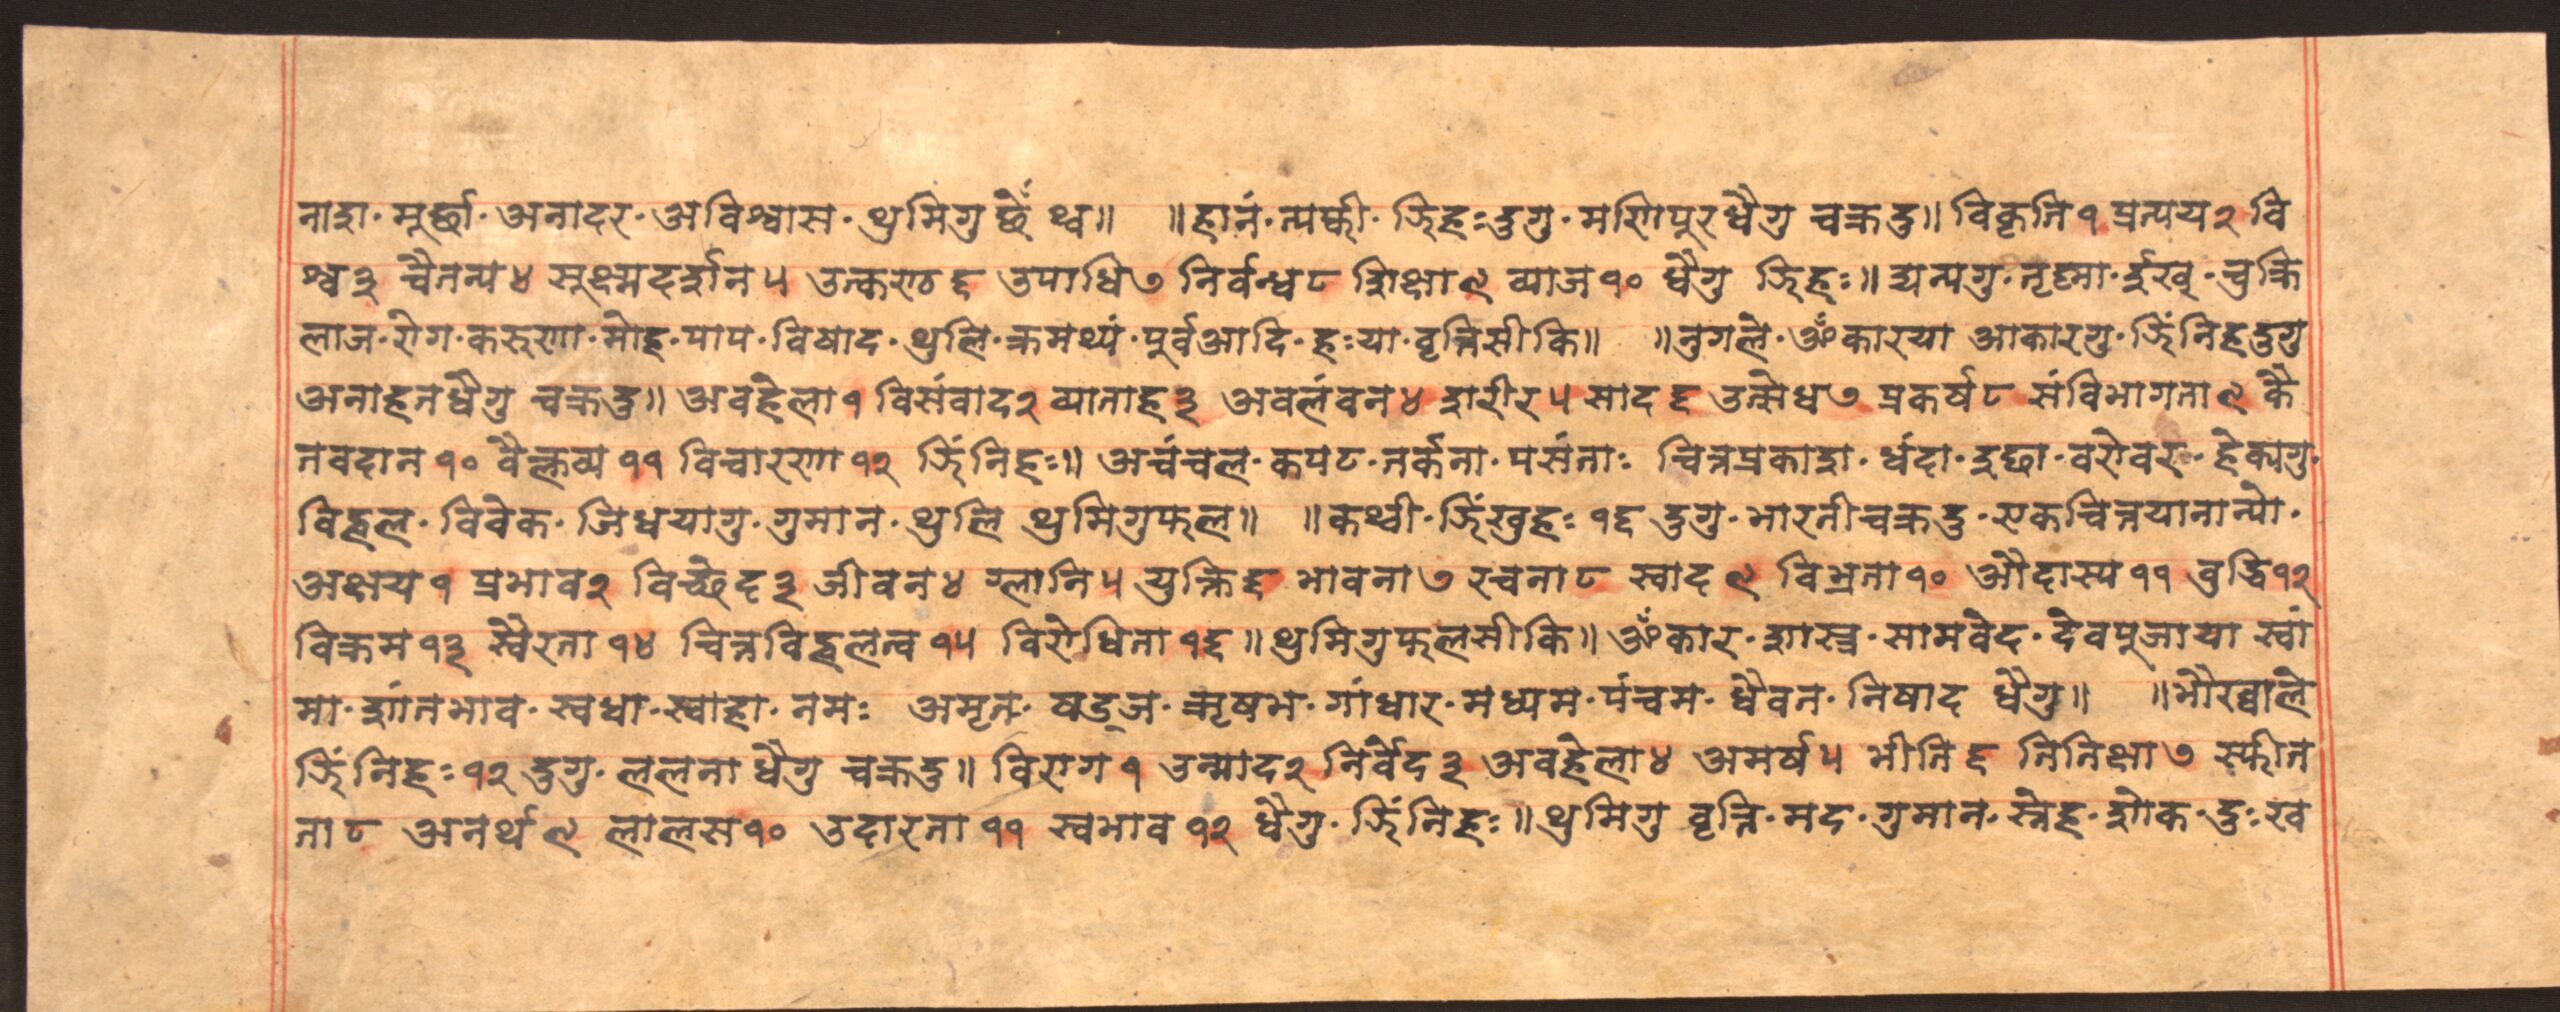 नाश· मूर्छा· अनादर· अविश्वास· थुमिगु छेँ थ्व॥ ॥हानं· त्यफ्वी· झिहः दुगु· मणिपूर धैगु चक्र दु॥ विकृति १ प्रत्यय २ वि
श्व ३ चैतन्य ४ सूक्ष्मदर्शन ५ उत्कण्ठ ६ उपाधि ७ निर्वन्ध ८ शिक्षा ९ व्याज १० धैगु झिहः॥ द्यन्यगु· तृष्णा· ईर्ख· चुक्लि
लाज· रोग· करुणा· मोह· पाप· विषाद· थुलि· क्रमथ्यं· पुर्वआदि· हःया· वृत्तिसीकि॥ ॥नुगले· ॐकारया आकारगु· झिंनिह दुगु
अनाहत धैगु चक्र दु॥ अवहेला १ विसंवाद २ व्यानाह ३ अवलंवन ४ शरीर ५ साद ६ उत्सेध ७ प्रकर्ष ८ संविभागता ९ कै
तवदान १० वैक्लव्य ११ विचारणा १२ झिंनिहः॥ अचंचल· कपट· तर्कना· पसंताः चित्तप्रकाश· धंदा· इछा· वरोवर· हेक्यगु·
विह्वल· विवेक· जिधयागु· गुमान· थुलि थुमिगु फल॥ ॥कथ्वी· झिंखुहः १६ दुगु· भारतीचक्र दु· एकचित्तयानान्यो·
अक्षय १ प्रभाव २ विच्छेद ३ जीवन ४ ग्लानि ५ युक्ति ६ भावना ७ रचना ८ स्वाद ९ विभ्रता १० औदास्य ११ वुद्धि १२
विक्रम १३ स्वैरता १४ चित्तविह्वलत्व १५ विरोधिता १६॥ थुमिगु फलसीकि॥ ॐकार· शास्त्र· सामवेद· देवपुजाया स्वां
मा· शांतभाव· स्वधा· स्वाहा· नमः अमृत· षड्ज· ऋषभ· गांधार· मध्यम· पंचम· धैवत· निषाद धैगु॥ ॥भौरव्वाले
झिंनिहः १२ दुगु· ललना धैगु चक्र दु॥ विराग १ उन्माद २ निर्वेद ३ अवहेला ४ अमर्ष ५ भीति ६ तितिक्षा ७ स्फीत
ता ८ अनर्थ ९ लालस १० उदारता ११ स्वभाव १२ धैगु· झिंनिहः॥ थुमिगु वृत्ति· मद· गुमान· स्नेह· शोक· दुःख